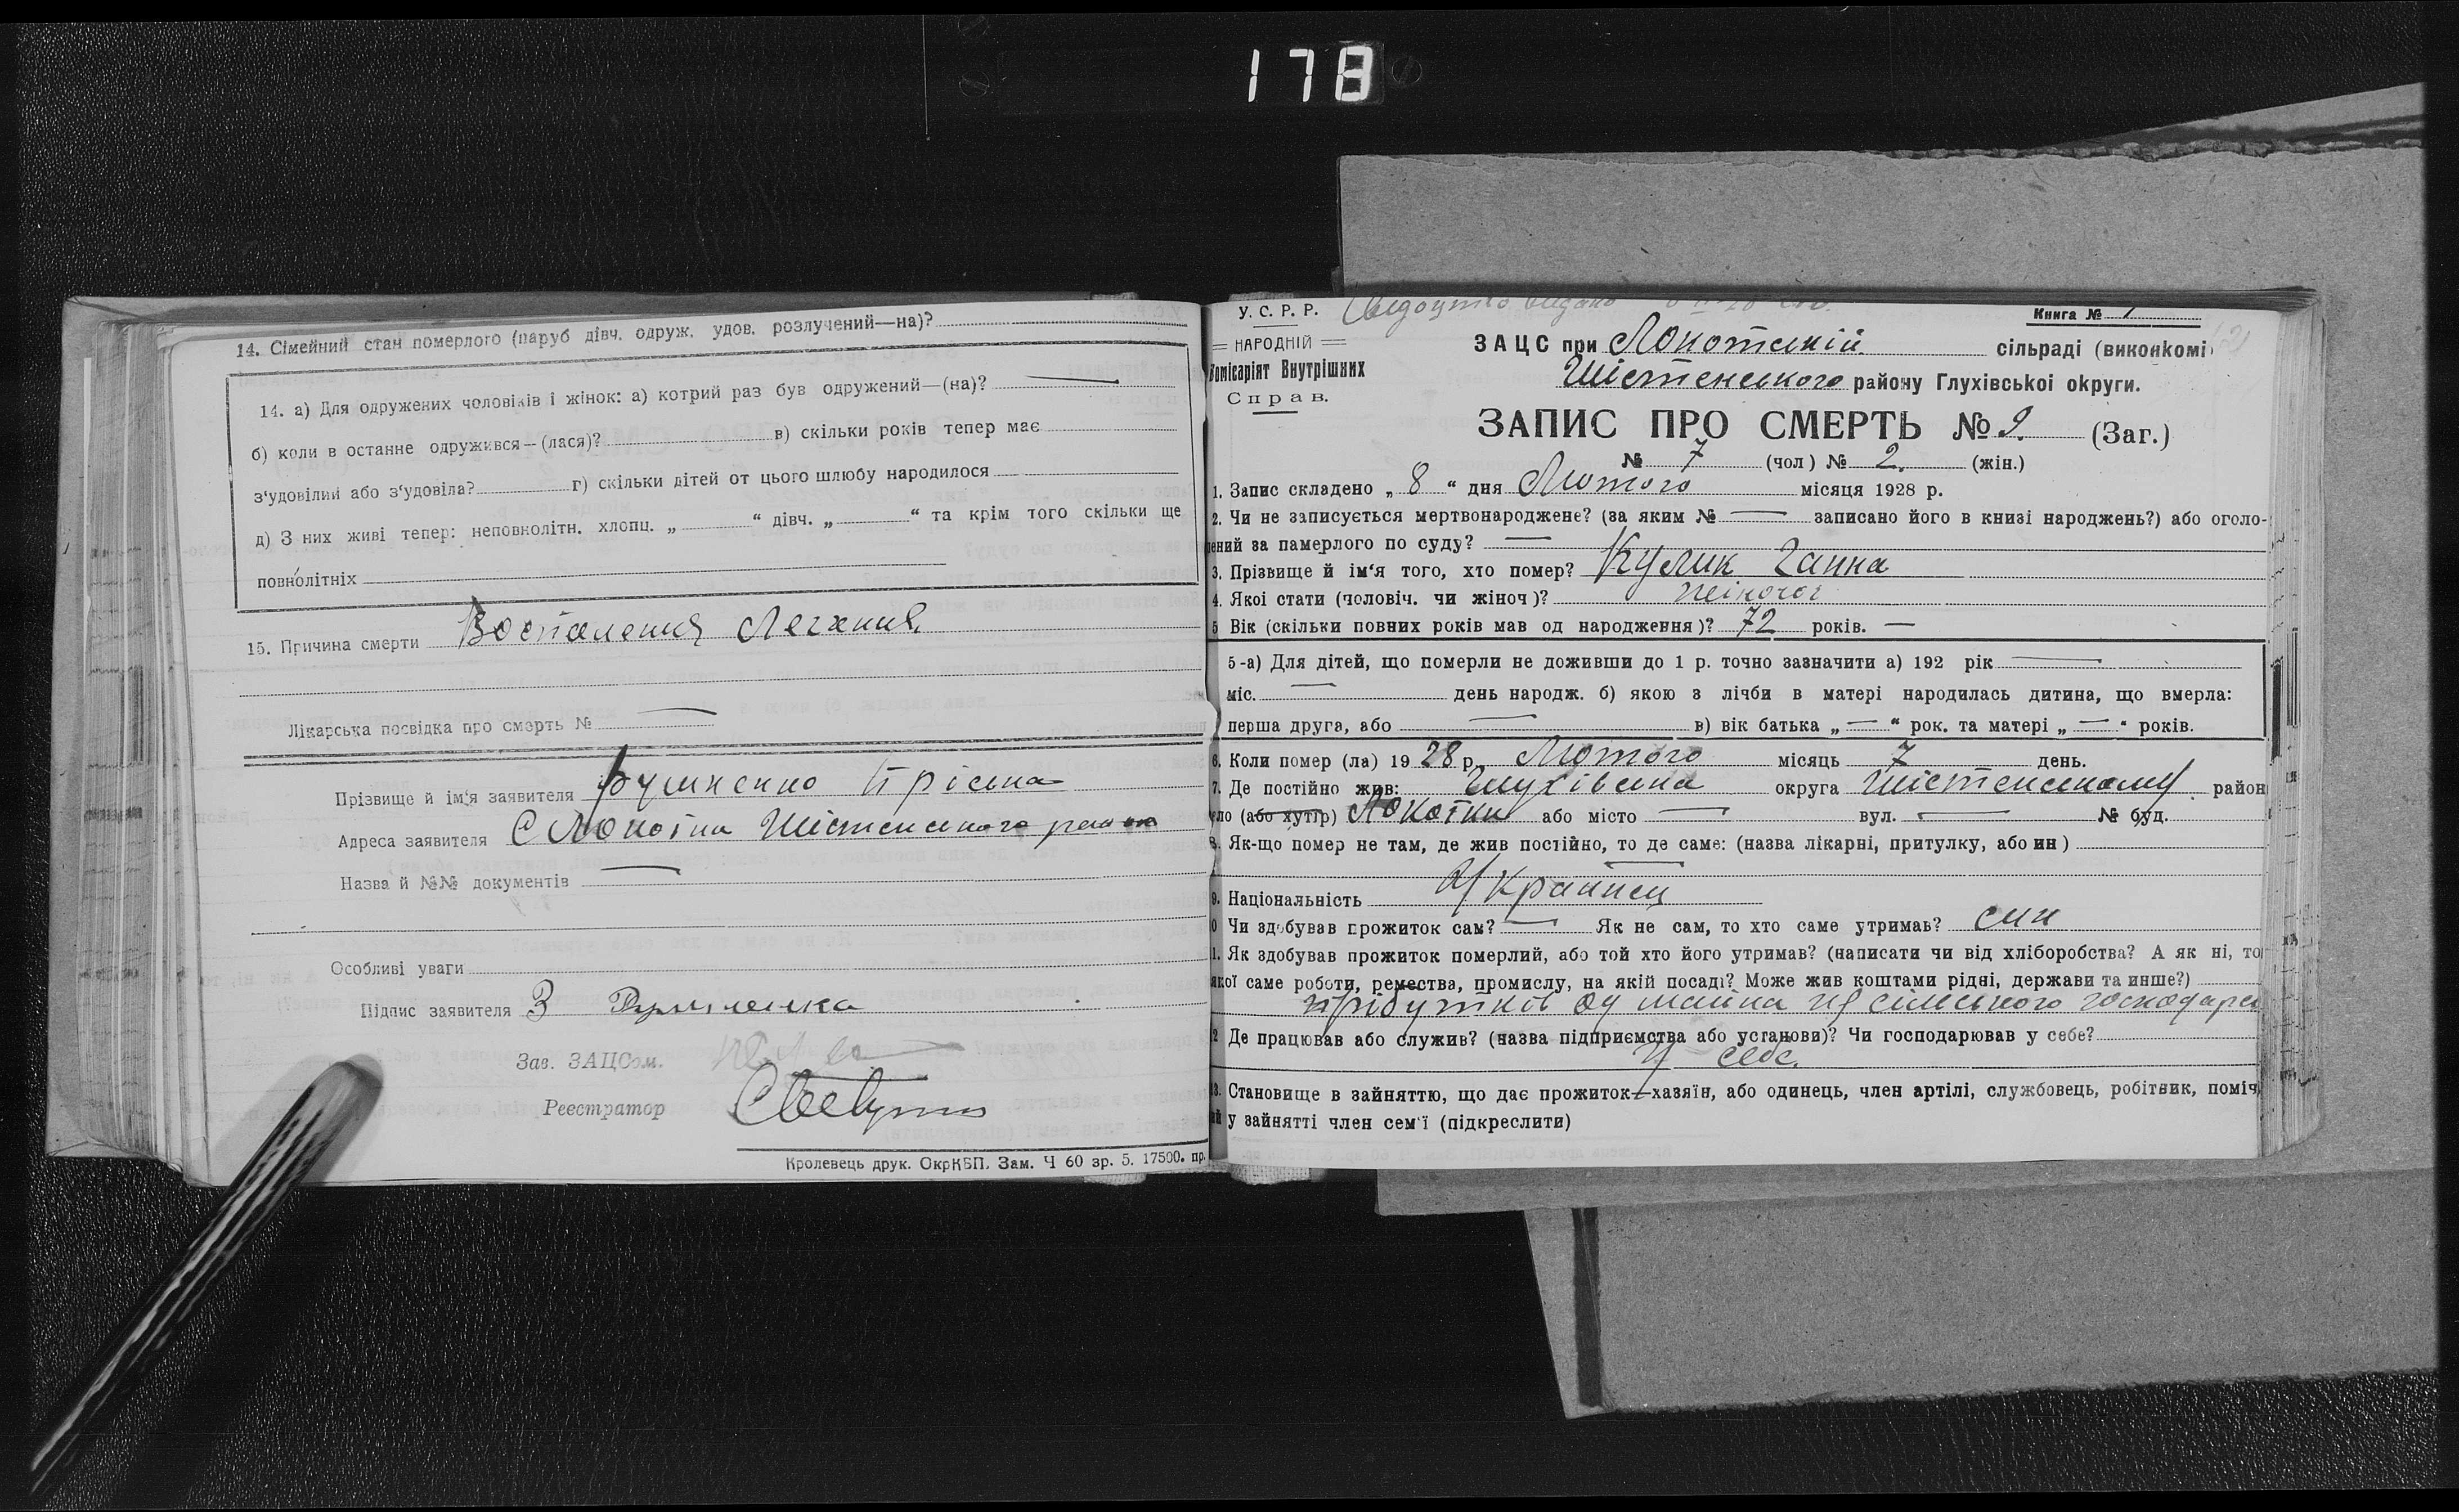 178
14. Сімейний стан померлого (паруб дівч. одруж. удов. розлучений—на)?
14. а) Для одружених чоловіків і жінок: а) котрий раз був одружений—(на)? —
б) коли в останнє одружився—(лася)? в) скільки років тепер має
з'удовілий або з'удовіла? г) скільки дітей от цього шлюбу народилося
д) З них живі тепер: неповнолітн. хлопц. „ “ дівч. „ “ та крім того скільки ще
повнолітніх
15. Причина смерти Воспаления Легхния
Лікарська посвідка про смерть № —
Прізвище й ім'я заявителя Пріська
Адреса заявителя С Локотки Шістенського району
Назва й №№ документів —
Особливі уваги
Підпис заявителя З
Зав. ЗАЦСом.
Реєстратор
Кролевець друк. ОкрКВП. Зам. Ч 60 зр. 5. 17500. пр.
У. С. Р. Р. Свідоцтво видано
Книга № 1
НАРОДНІЙ
Комісаріят Внутрішних
Справ.
ЗАЦС при Локотській сільраді (виконкомі)
Шістенського району Глухівської округи.
ЗАПИС ПРО СМЕРТЬ № 9. (Заг.)
№ 7 (чол) № 2. (жін.)
1. Запис складено „ 8 “ дня Лютого місяця 1928 р.
2. Чи не записується мертвонароджене? (за яким № — записано його в книзі народжень?) або оголо-
шений за памерлого по суду? —
3. Прізвище й ім'я того, хто помер? Кулик Ганна
4. Якої стати (чоловіч. чи жіноч)? жіночої
5 Вік (скільки повних років мав од народження)? 72 років. —
5-а) Для дітей, що померли не доживши до 1 р. точно зазначити а) 192 рік —
міс. — день народж. б) якою з лічби в матері народилась дитина, що вмерла:
перша друга, або — в) вік батька „ — “ рок. та матері „ — “ років.
6. Коли помер (ла) 1928 р. Лютого місяць 7 день.
7. Де постійно жив: Глухівська округа Шістенському район
село (або хутір) Локотки або місто — вул. — № буд.
8. Як-що помер не там, де жив постійно, то де саме: (назва лікарні, притулку, або ин)
—
9. Національність Українец
10 Чи здобував прожиток сам? — Як не сам, то хто саме утримав? син
11. Як здобував прожиток померлий, або той хто його утримав? (написати чи від хліборобства? А як ні, то
якої саме роботи, ремества, промислу, на якій посаді? Може жив коштами рідні, держави та инше?)
прібутків од майна из сільського господарс
12 Де працював або служив? (назва підприємства або установи)? Чи господарював у себе?
У себе.
13. Становище в зайняттю, що дає прожиток—хазяїн, або одинець, член артілі, службовець, робітник, поміч
ий у зайнятті член сем'ї (підкреслити)